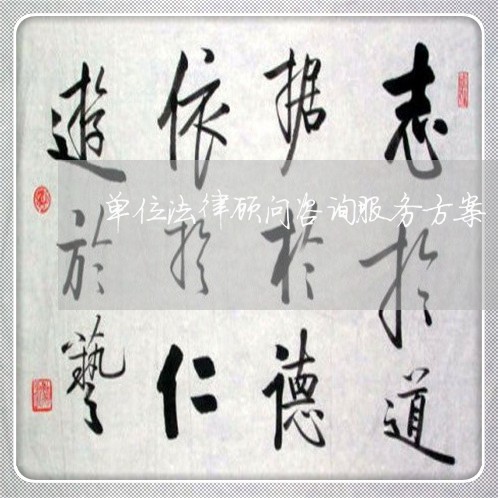 志於道
据於德
依於仁
遊於藝
单位法律顾问咨询服务方案